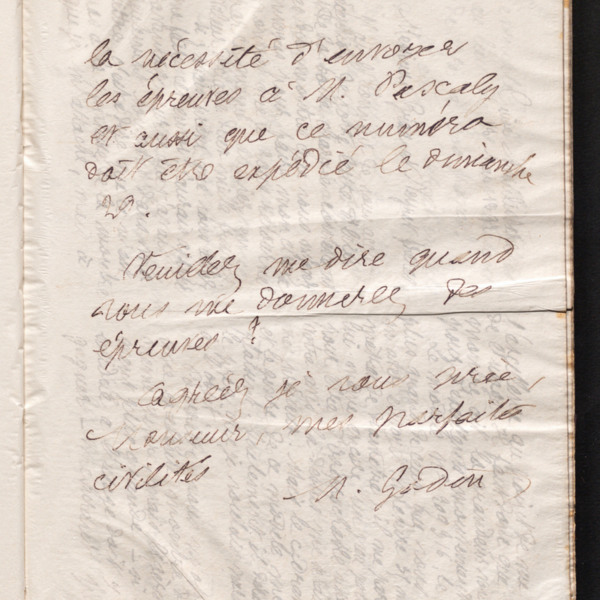 la nécessité d'envoyer
les épreuves à M. Pascaly
et aussi que ce numéro
doit être expédié le dimanche
29.
Veuillez me dire quand
vous me donnerez des
épreuves ?
Agréez je vous prie,
Monsieur, mes parfaites
civilités
M. Godin